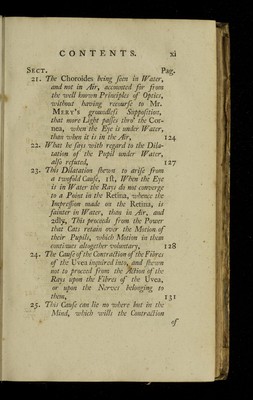 CONTENTS. xi
SECT. Pag.
21. The Choroides being ſeen in Water,
and not in Air, accounted for from
the well known Principles of Optics,
without having recourſe to Mr.
MERY's groundleſs Suppoſition,
that more Light paſſes thro' the Cor-
nea, when the Eye is under Water,
than when it is in the Air, 124
22. What he ſays with regard to the Dila-
tation of the Pupil under Water,
alſo refuted, 127
23. This Dilatation ſhewn to ariſe from
a twofold Cauſe, 1ſt, When the Eye
is in Water the Rays do not converge
to a Point in the Retina, whence the
Impreſſion made on the Retina, is
fainter in Water, than in Air, and
2dly, This proceeds from the Power
that Cats retain over the Motion of
their Pupils, which Motion in them
continues altogether voluntary, 128
24. The Cauſe of the Contraction of the Fibres
of the Uvea inquired into, and ſhewn
not to proceed from the Action of the
Rays upon the Fibres of the Uvea,
or upon the Nerves belonging to
them, 131
25. This Cauſe can lie no where but in the
Mind, which wills the Contraction
of